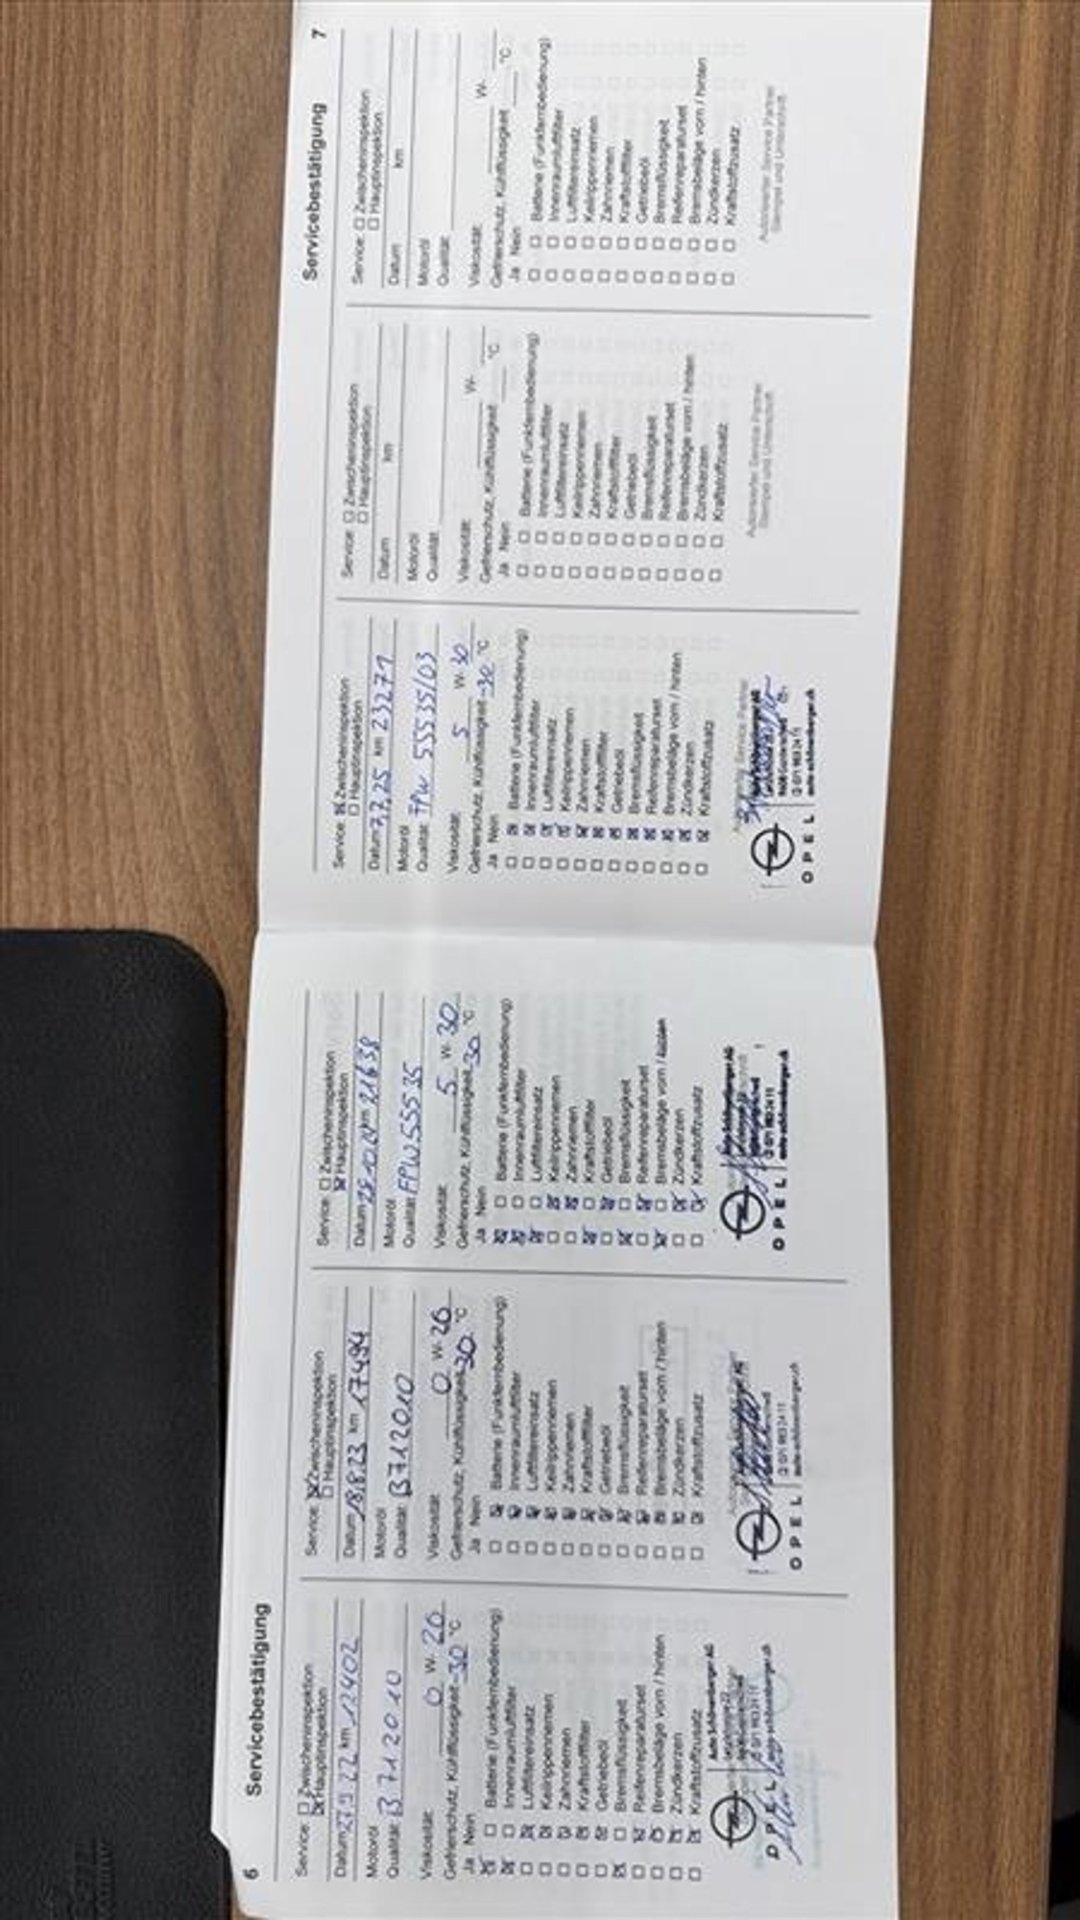 6 Servicebestätigung
Service: ☐ Zwischeninspektion
☒ Hauptinspektion
Datum 27.9.22 km 12402
Motoröl
Qualität: B712010
Viskosität: 0 W- 20
Gefrierschutz, Kühlflüssigkeit -30 °C
Ja Nein
☒ ☐ Batterie (Funkfernbedienung)
☒ ☐ Innenraumluftfilter
☐ ☒ Luftfiltereinsatz
☐ ☒ Keilrippenriemen
☐ ☒ Zahnriemen
☐ ☒ Kraftstofffilter
☐ ☒ Getriebeöl
☒ ☐ Bremsflüssigkeit
☐ ☒ Reifenreparaturset
☐ ☒ Bremsbeläge vorn / hinten
☐ ☒ Zündkerzen
☐ ☒ Kraftstoffzusatz
Auto Schönenberger AG
OPEL
auto-schönenberger.ch
Service: ☒ Zwischeninspektion
☐ Hauptinspektion
Datum 18.8.23 km 17494
Motoröl
Qualität: B712010
Viskosität: 0 W- 20
Gefrierschutz, Kühlflüssigkeit -30 °C
Ja Nein
☐ ☒ Batterie (Funkfernbedienung)
☐ ☒ Innenraumluftfilter
☐ ☒ Luftfiltereinsatz
☐ ☒ Keilrippenriemen
☐ ☒ Zahnriemen
☐ ☒ Kraftstofffilter
☐ ☒ Getriebeöl
☐ ☒ Bremsflüssigkeit
☐ ☒ Reifenreparaturset
☐ ☒ Bremsbeläge vorn / hinten
☐ ☒ Zündkerzen
☐ ☒ Kraftstoffzusatz
OPEL
071 983 24 11
auto-schönenberger.ch
Service: ☐ Zwischeninspektion
☒ Hauptinspektion
Datum km 21638
Motoröl
Qualität: FPW55535
Viskosität: 5 W- 30
Gefrierschutz, Kühlflüssigkeit -30 °C
Ja Nein
☒ ☐ Batterie (Funkfernbedienung)
☒ ☐ Innenraumluftfilter
☒ ☐ Luftfiltereinsatz
☐ ☒ Keilrippenriemen
☐ ☒ Zahnriemen
☒ ☐ Kraftstofffilter
☐ ☒ Getriebeöl
☒ ☐ Bremsflüssigkeit
☐ ☒ Reifenreparaturset
☒ ☐ Bremsbeläge vorn / hinten
☐ ☒ Zündkerzen
☐ ☒ Kraftstoffzusatz
OPEL
071 983 24 11
auto-schönenberger.ch
Servicebestätigung 7
Service: ☒ Zwischeninspektion
☐ Hauptinspektion
Datum 7.7.25 km 23271
Motoröl
Qualität: FPW 55535/03
Viskosität: 5 W- 30
Gefrierschutz, Kühlflüssigkeit -30 °C
Ja Nein
☐ ☒ Batterie (Funkfernbedienung)
☐ ☒ Innenraumluftfilter
☐ ☒ Luftfiltereinsatz
☐ ☒ Keilrippenriemen
☐ ☒ Zahnriemen
☐ ☒ Kraftstofffilter
☐ ☒ Getriebeöl
☐ ☒ Bremsflüssigkeit
☐ ☒ Reifenreparaturset
☐ ☒ Bremsbeläge vorn / hinten
☐ ☒ Zündkerzen
☐ ☒ Kraftstoffzusatz
OPEL
071 983 24 11
auto-schönenberger.ch
Service: ☐ Zwischeninspektion
☐ Hauptinspektion
Datum km
Motoröl
Qualität:
Viskosität: W-
Gefrierschutz, Kühlflüssigkeit °C
Ja Nein
☐ ☐ Batterie (Funkfernbedienung)
☐ ☐ Innenraumluftfilter
☐ ☐ Luftfiltereinsatz
☐ ☐ Keilrippenriemen
☐ ☐ Zahnriemen
☐ ☐ Kraftstofffilter
☐ ☐ Getriebeöl
☐ ☐ Bremsflüssigkeit
☐ ☐ Reifenreparaturset
☐ ☐ Bremsbeläge vorn / hinten
☐ ☐ Zündkerzen
☐ ☐ Kraftstoffzusatz
Autorisierter Service Partner
Stempel und Unterschrift
Service: ☐ Zwischeninspektion
☐ Hauptinspektion
Datum km
Motoröl
Qualität:
Viskosität: W-
Gefrierschutz, Kühlflüssigkeit °C
Ja Nein
☐ ☐ Batterie (Funkfernbedienung)
☐ ☐ Innenraumluftfilter
☐ ☐ Luftfiltereinsatz
☐ ☐ Keilrippenriemen
☐ ☐ Zahnriemen
☐ ☐ Kraftstofffilter
☐ ☐ Getriebeöl
☐ ☐ Bremsflüssigkeit
☐ ☐ Reifenreparaturset
☐ ☐ Bremsbeläge vorn / hinten
☐ ☐ Zündkerzen
☐ ☐ Kraftstoffzusatz
Autorisierter Service Partner
Stempel und Unterschrift